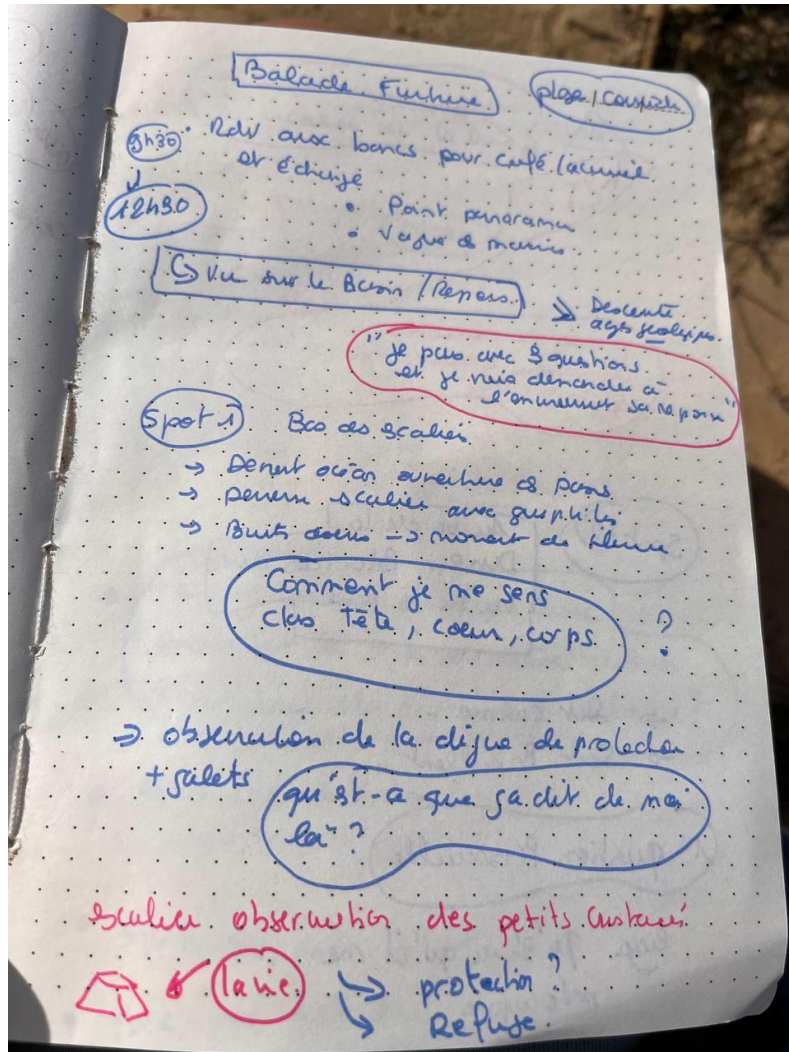 Balade
plage /
9h30 Rdv aux bancs pour café /accueil
et échange
12h30
• Point panorama
• Vague de
↳ Vu sur le Bassin / Repars
> Descente
"je pars avec 3 questions
et je vais demander à
sa réponse"
Spot 1 Bas des escaliers
→ Devant océan ouverture
→ escalier avec
→ Bruits → moment de silence
Comment je me sens
dans Tête, coeur, corps ?
→ observation de la digue de protection
+ galets
qu'est-ce que ça dit de moi
là ?
escalier observation des petits crustacés
la vie → protection ?
→ Refuge.